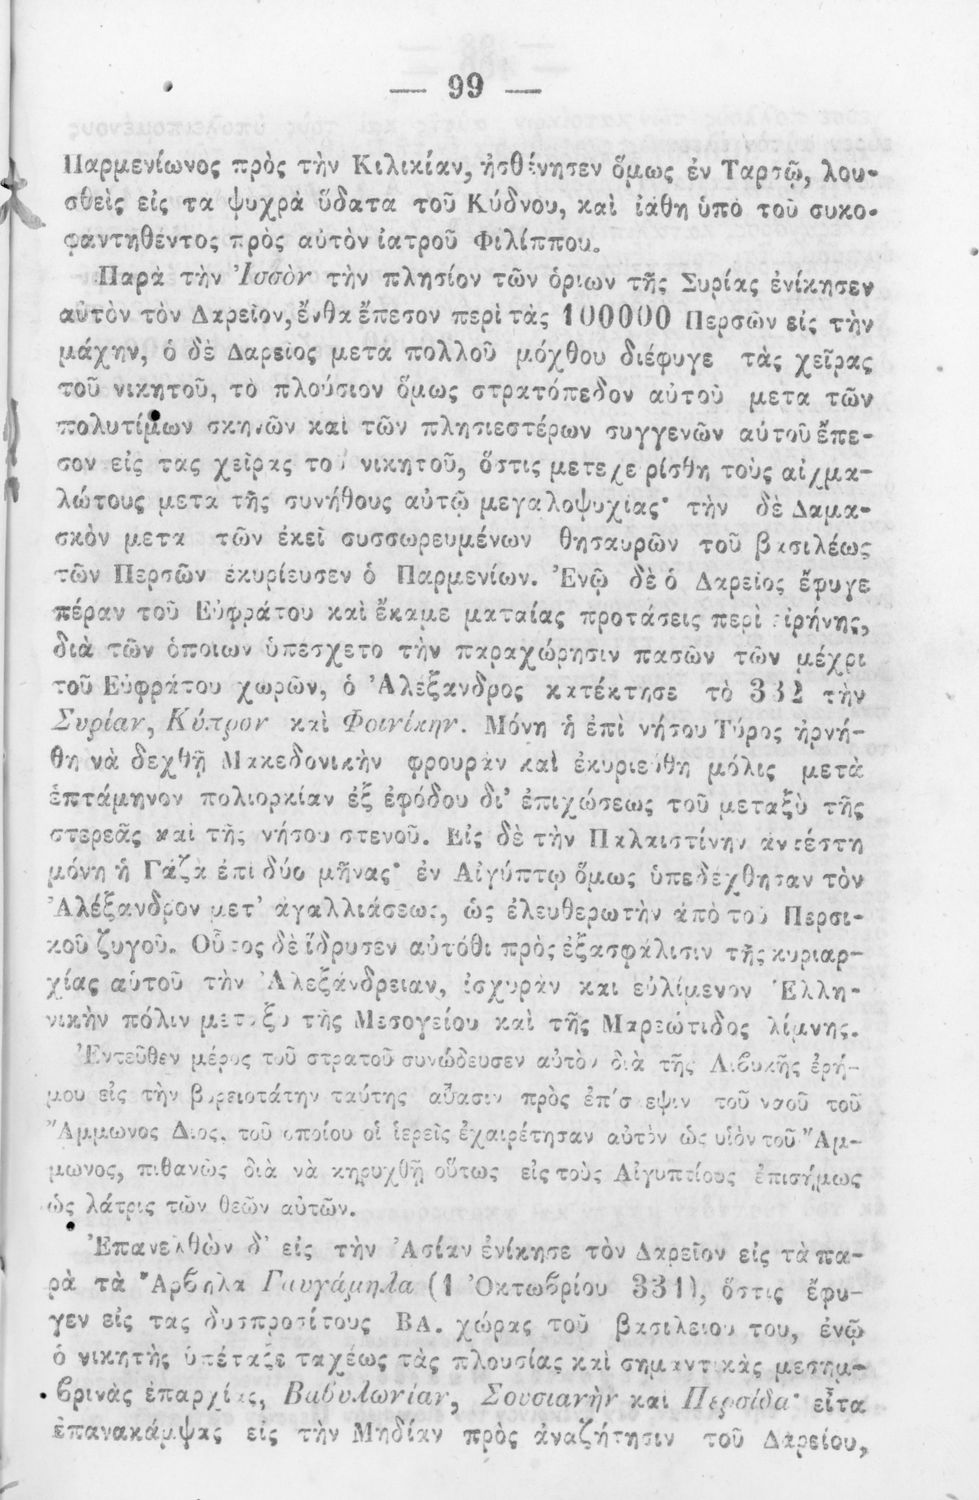 — 99 —
Παρμενίωνος πρὸς τὴν Κιλικίαν, ἠσθένησεν ὅμως ἐν Ταρσῷ, λου-
σθεὶς εἰς τα ψυχρὰ ὕδατα τοῦ Κύδνου, καὶ ἰάθη ὑπὸ τοῦ συκο-
φαντηθέντος πρὸς αὐτὸν ἰατροῦ Φιλίππου.
Παρὰ τὴν Ἰσσὸν τὴν πλησίον τῶν ὁρίων τῆς Συρίας ἐνίκησεν
αὐτὸν τὸν Δαρεῖον, ἔνθα ἔπεσον περὶ τὰς 100000 Περσῶν εἰς τὴν
μάχην, ὁ δὲ Δαρεῖος μετὰ πολλοῦ μόχθου διέφυγε τὰς χεῖρας
τοῦ νικητοῦ, τὸ πλούσιον ὅμως στρατόπεδον αὐτοῦ μετα τῶν
πολυτίμων σκηνῶν καὶ τῶν πλησιεστέρων συγγενῶν αὐτοῦ ἔπε-
σον εἰς τας χεῖρας τοῦ νικητοῦ, ὅστις μετεχειρίσθη τοὺς αἰχμα-
λώτους μετα τῆς συνήθους αὐτῷ μεγαλοψυχίας· τὴν δὲ Δαμα-
σκὸν μετα τῶν ἐκεῖ συσσωρευμένων θησαυρῶν τοῦ βασιλέως
τῶν Περσῶν ἐκυρίευσεν ὁ Παρμενίων. Ἐνῷ δὲ ὁ Δαρεῖος ἔφυγε
πέραν τοῦ Εὐφράτου καὶ ἔκαμε ματαίας προτάσεις περὶ εἰρήνης,
διὰ τῶν ὁποίων ὑπέσχετο τὴν παραχώρησιν πασῶν τῶν μέχρι
τοῦ Εὐφράτου χωρῶν, ὁ Ἀλέξανδρος κατέκτησε τὸ 332 τὴν
Συρίαν, Κύπρον καὶ Φοινίκην. Μόνη ἡ ἐπὶ νήσου Τύρος ἠρνή-
θη νὰ δεχθῇ Μακεδονικὴν φρουρὰν καὶ ἐκυριεύθη μόλις μετὰ
ἑπτάμηνον πολιορκίαν ἐξ ἐφόδου δι' ἐπιχώσεως τοῦ μεταξὺ τῆς
στερεᾶς καὶ τῆς νήσου στενοῦ. Εἰς δὲ τὴν Παλαιστίνην ἀντέστη
μόνη ἡ Γάζα ἐπὶ δύο μῆνας· ἐν Αἰγύπτῳ ὅμως ὑπεδέχθησαν τὸν
Ἀλέξανδρον μετ' ἀγαλλιάσεως, ὡς ἐλευθερωτὴν ἀπὸ τοῦ Περσι-
κοῦ ζυγοῦ. Οὗτος δὲ ἵδρυσεν αὐτόθι πρὸς ἐξασφάλισιν τῆς κυριαρ-
χίας αὑτοῦ τὴν Ἀλεξάνδρειαν, ἰσχυρὰν και εὐλίμενον Ἑλλη-
νικὴν πόλιν μεταξὺ τῆς Μεσογείου καὶ τῆς Μαρεώτιδος λίμνης.
Ἐντεῦθεν μέρος τοῦ στρατοῦ συνώδευσεν αὐτὸν διὰ τῆς Λιβυκῆς ἐρή-
μου εἰς τὴν βορειοτάτην ταύτης αὔασιν πρὸς ἐπίσκεψιν τοῦ ναοῦ τοῦ
Ἄμμωνος Διος, τοῦ ὁποίου οἱ ἱερεῖς ἐχαιρέτησαν αὐτὸν ὡς υἱὸν τοῦ Ἄμ-
μωνος, πιθανῶς διὰ νὰ κηρυχθῇ οὕτως εἰς τοὺς Αἰγυπτίους ἐπισήμως
ὡς λάτρις τῶν θεῶν αὐτῶν.
Ἐπανελθὼν δ' εἰς τὴν Ἀσίαν ἐνίκησε τὸν Δαρεῖον εἰς τὰ πα-
ρὰ τὰ Ἄρβηλα Γαυγάμηλα (1 Ὀκτωβρίου 331), ὅστις ἔφυ-
γεν εἰς τας δυσπροσίτους ΒΑ. χώρας τοῦ βασιλείου του, ἐνῷ
ὁ νικητὴς ὑπέταξε ταχέως τὰς πλουσίας καὶ σημαντικὰς μεσημ-
βρινὰς ἐπαρχίας, Βαβυλωνίαν, Σουσιανὴν καὶ Περσίδα· εἶτα
ἐπανακάμψας εἰς τὴν Μηδίαν πρὸς ἀναζήτησιν τοῦ Δαρείου,